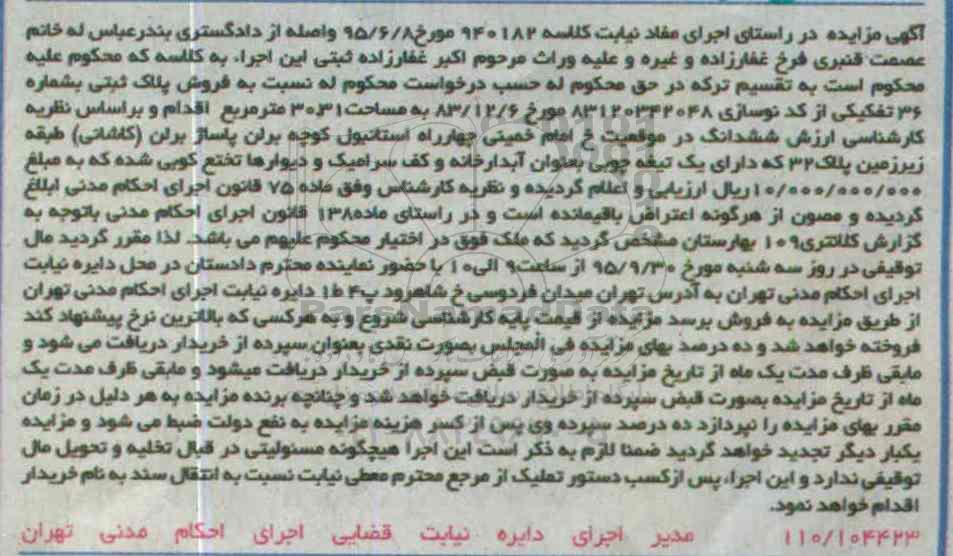 آگهی مزایده در راستای اجرای مفاد نیابت کلاسه ۹۴۰۱۸۲ مورخ ۹۵/۶/۸ واصله از دادگستری بندرعباس له خانم
عصمت قنبری فرخ غفارزاده و غیره و علیه وراث مرحوم اکبر غفارزاده ثبتی این اجرا، به کلاسه که محکوم علیه
محکوم است به تقسیم ترکه در حق محکوم له حسب درخواست محکوم له نسبت به فروش پلاک ثبتی بشماره
۳۶ تفکیکی از کد نوسازی ۸۳۱۲۰۳۴۲۰۴۸ مورخ ۸۳/۱۲/۶ به مساحت ۳۰.۳۱ مترمربع اقدام و براساس نظریه
کارشناسی ارزش ششدانگ در موقعیت خ امام خمینی چهارراه استانبول کوچه برلن پاساژ برلن (کاشانی) طبقه
زیرزمین پلاک۳۲ که دارای یک تیغه چوبی بعنوان آبدارخانه و کف سرامیک و دیوارها تختع کوبی شده که به مبلغ
۱۰/۰۰۰/۰۰۰/۰۰۰ریال ارزیابی و اعلام گردیده و نظریه کارشناس وفق ماده ۷۵ قانون اجرای احکام مدنی ابلاغ
گردیده و مصون از هرگونه اعتراض باقیمانده است و در راستای ماده۱۳۸ قانون اجرای احکام مدنی باتوجه به
گزارش کلانتری۱۰۹ بهارستان مشخص گردید که ملک فوق در اختیار محکوم علیهم می باشد. لذا مقرر گردید مال
توقیفی در روز سه شنبه مورخ ۹۵/۹/۳۰ از ساعت۹ الی۱۰ با حضور نماینده محترم دادستان در محل دایره نیابت
اجرای احکام مدنی تهران به آدرس تهران میدان فردوسی خ شاهرود پ۴ ط۱ دایره نیابت اجرای احکام مدنی تهران
از طریق مزایده به فروش برسد مزایده از قیمت پایه کارشناسی شروع و به هرکسی که بالاترین نرخ پیشنهاد کند
فروخته خواهد شد و ده درصد بهای مزایده فی المجلس بصورت نقدی بعنوان سپرده از خریدار دریافت می شود و
مابقی ظرف مدت یک ماه از تاریخ مزایده به صورت قبض سپرده از خریدار دریافت میشود و مابقی ظرف مدت یک
ماه از تاریخ مزایده بصورت قبض سپرده از خریدار دریافت خواهد شد و چنانچه برنده مزایده به هر دلیل در زمان
مقرر بهای مزایده را نپردازد ده درصد سپرده وی پس از کسر هزینه مزایده به نفع دولت ضبط می شود و مزایده
یکبار دیگر تجدید خواهد گردید ضمنا لازم به ذکر است این اجرا هیچگونه مسئولیتی در قبال تخلیه و تحویل مال
توقیفی ندارد و این اجرا، پس ازکسب دستور تملیک از مرجع محترم معطی نیابت نسبت به انتقال سند به نام خریدار
اقدام خواهد نمود.
۱۱۰/۱۰۴۴۲۳ مدیر اجرای دایره نیابت قضایی اجرای احکام مدنی تهران
ParsNamadData